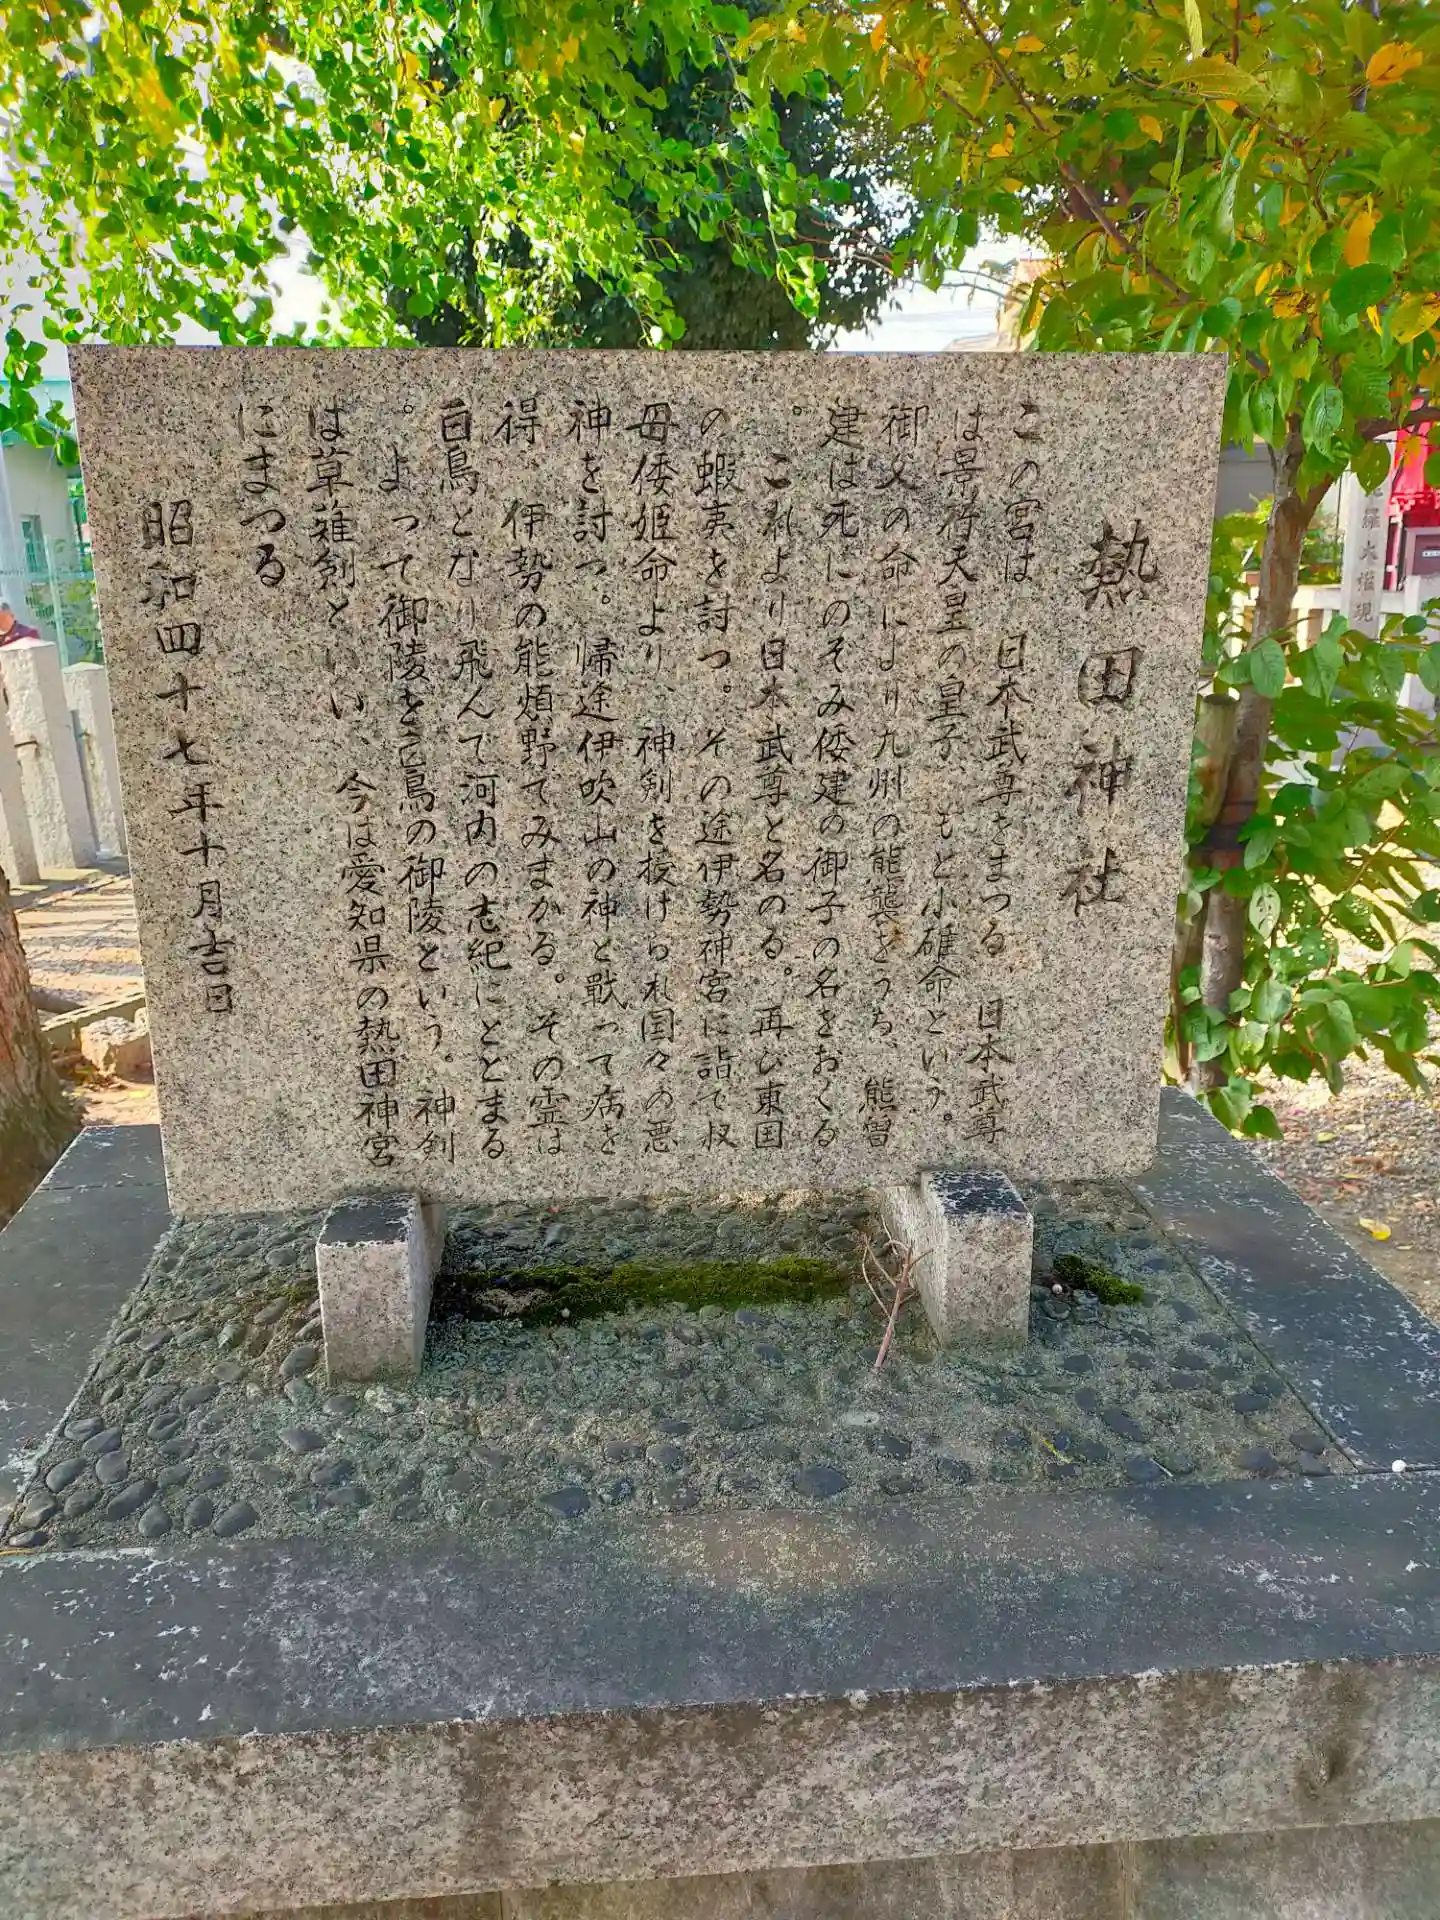 熱田神社
この宮は、日本武尊をまつる、日本武尊
は景行天皇の皇子、もと小碓命という。
御父の命により九州の熊襲をうち、熊曽
建は死にのそみ倭建の御子の名をおくる
。これより日本武尊と名のる。再び東国
の蝦夷を討つ。その途伊勢神宮に詣で叔
母倭姫命より、神剣を授けられ国々の悪
神を討つ。帰途伊吹山の神と戦って病を
得、伊勢の能煩野でみまかる。その霊は
白鳥となり飛んで河内の志紀にとどまる
。よって御陵を白鳥の御陵という。神剣
は草薙剣といい、今は愛知県の熱田神宮
にまつる
昭和四十七年十月吉日
大権現